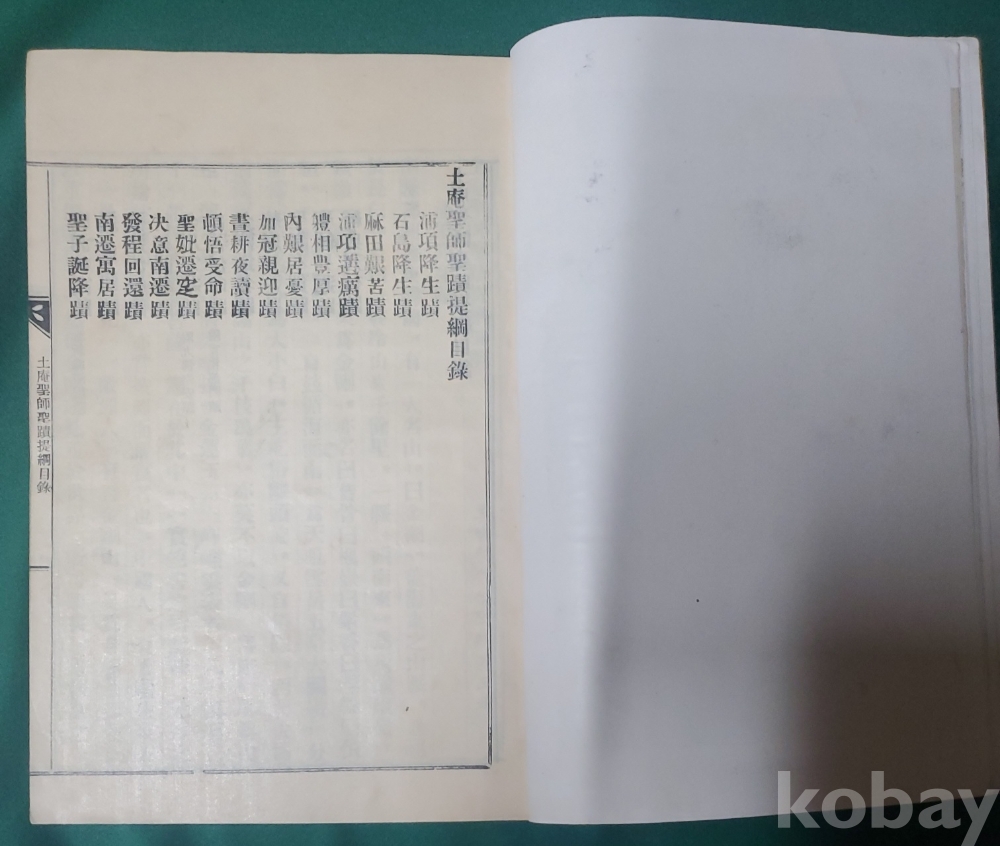 土庵聖師聖蹟提綱目錄
浦項降生蹟
石島降生蹟
麻田艱苦蹟
浦項遘癘蹟
體相豊厚蹟
內艱居憂蹟
加冠親迎蹟
晝耕夜讀蹟
頓悟受命蹟
聖妣遷窆蹟
決意南遷蹟
發程回還蹟
南遷寓居蹟
聖子誕降蹟
土庵聖師聖蹟提綱目錄
kobay